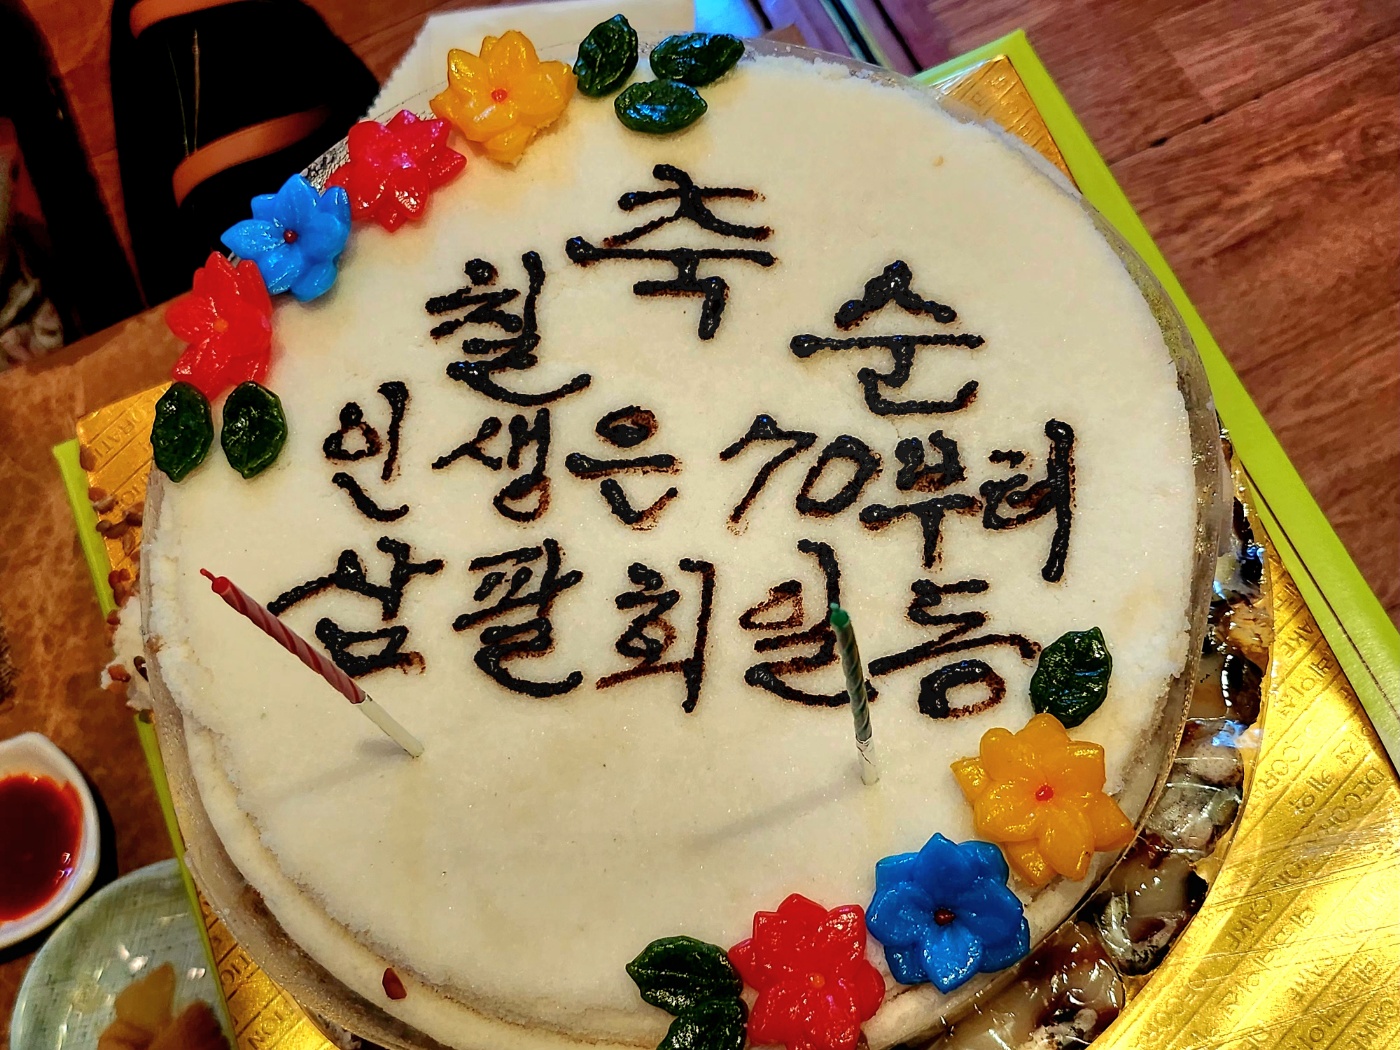 축
칠 순
인생은 70부터
삼팔회일동